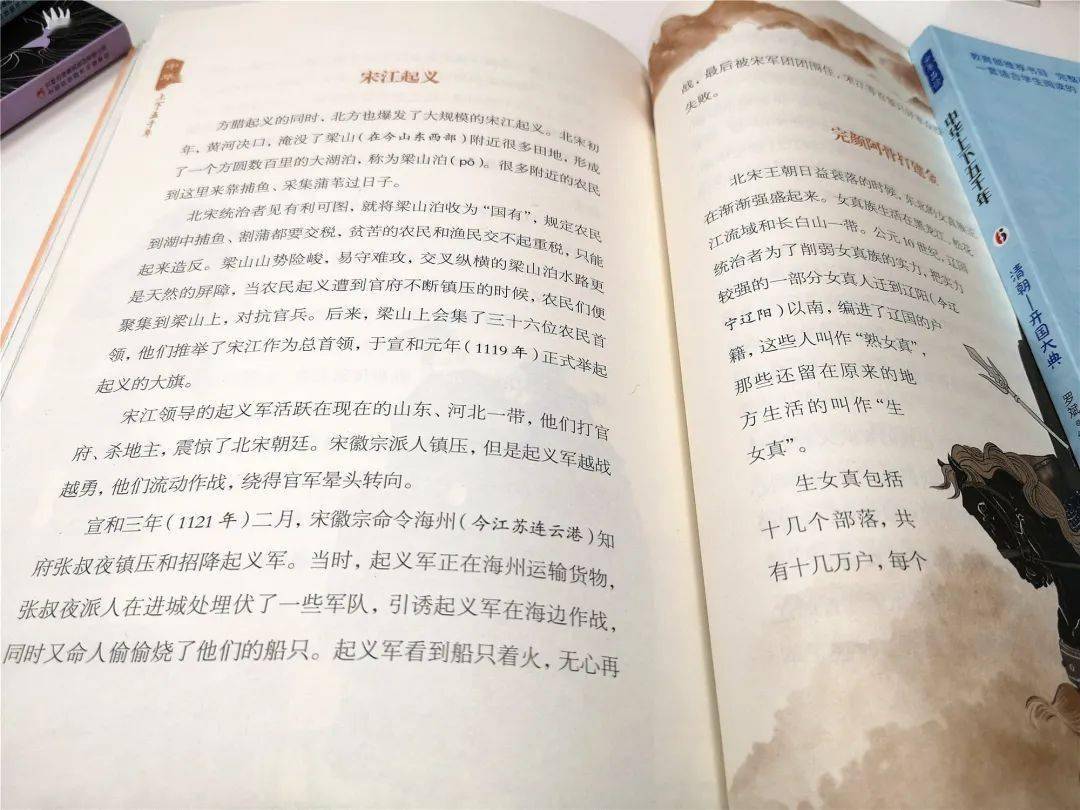 中华
上下五千年
宋江起义
方腊起义的同时，北方也爆发了大规模的宋江起义。北宋初
年，黄河决口，淹没了梁山（在今山东西部）附近很多田地，形成
了一个方圆数百里的大湖泊，称为梁山泊（pō）。很多附近的农民
到这里来靠捕鱼、采集蒲苇过日子。
北宋统治者见有利可图，就将梁山泊收为“国有”，规定农民
到湖中捕鱼、割蒲都要交税，贫苦的农民和渔民交不起重税，只能
起来造反。梁山山势险峻，易守难攻，交叉纵横的梁山泊水路更
是天然的屏障，当农民起义遭到官府不断镇压的时候，农民们便
聚集到梁山上，对抗官兵。后来，梁山上会集了三十六位农民首
领，他们推举了宋江作为总首领，于宣和元年（1119 年）正式举起
起义的大旗。
宋江领导的起义军活跃在现在的山东、河北一带，他们打官
府、杀地主，震惊了北宋朝廷。宋徽宗派人镇压，但是起义军越战
越勇，他们流动作战，绕得官军晕头转向。
宣和三年（1121 年）二月，宋徽宗命令海州（今江苏连云港）知
府张叔夜镇压和招降起义军。当时，起义军正在海州运输货物，
张叔夜派人在进城处埋伏了一些军队，引诱起义军在海边作战，
同时又命人偷偷烧了他们的船只。起义军看到船只着火，无心再
战，最后被宋军团团围住，宋江
失败。
完颜阿骨打建金
北宋王朝日益衰落的时候，东北的女真族
在渐渐强盛起来。女真族生活在黑龙江、松花
江流域和长白山一带。公元 10 世纪，辽国
统治者为了削弱女真族的实力，把实力
较强的一部分女真人迁到辽阳（今辽
宁辽阳）以南，编进了辽国的户
籍，这些人叫作“熟女真”，
那些还留在原来的地
方生活的叫作“生
女真”。
生女真包括
十几个部落，共
有十几万户，每个
教育部推荐书目 完整
一套适合学生阅读的
中华上下五千年
6
清朝—开国大典
罗斌